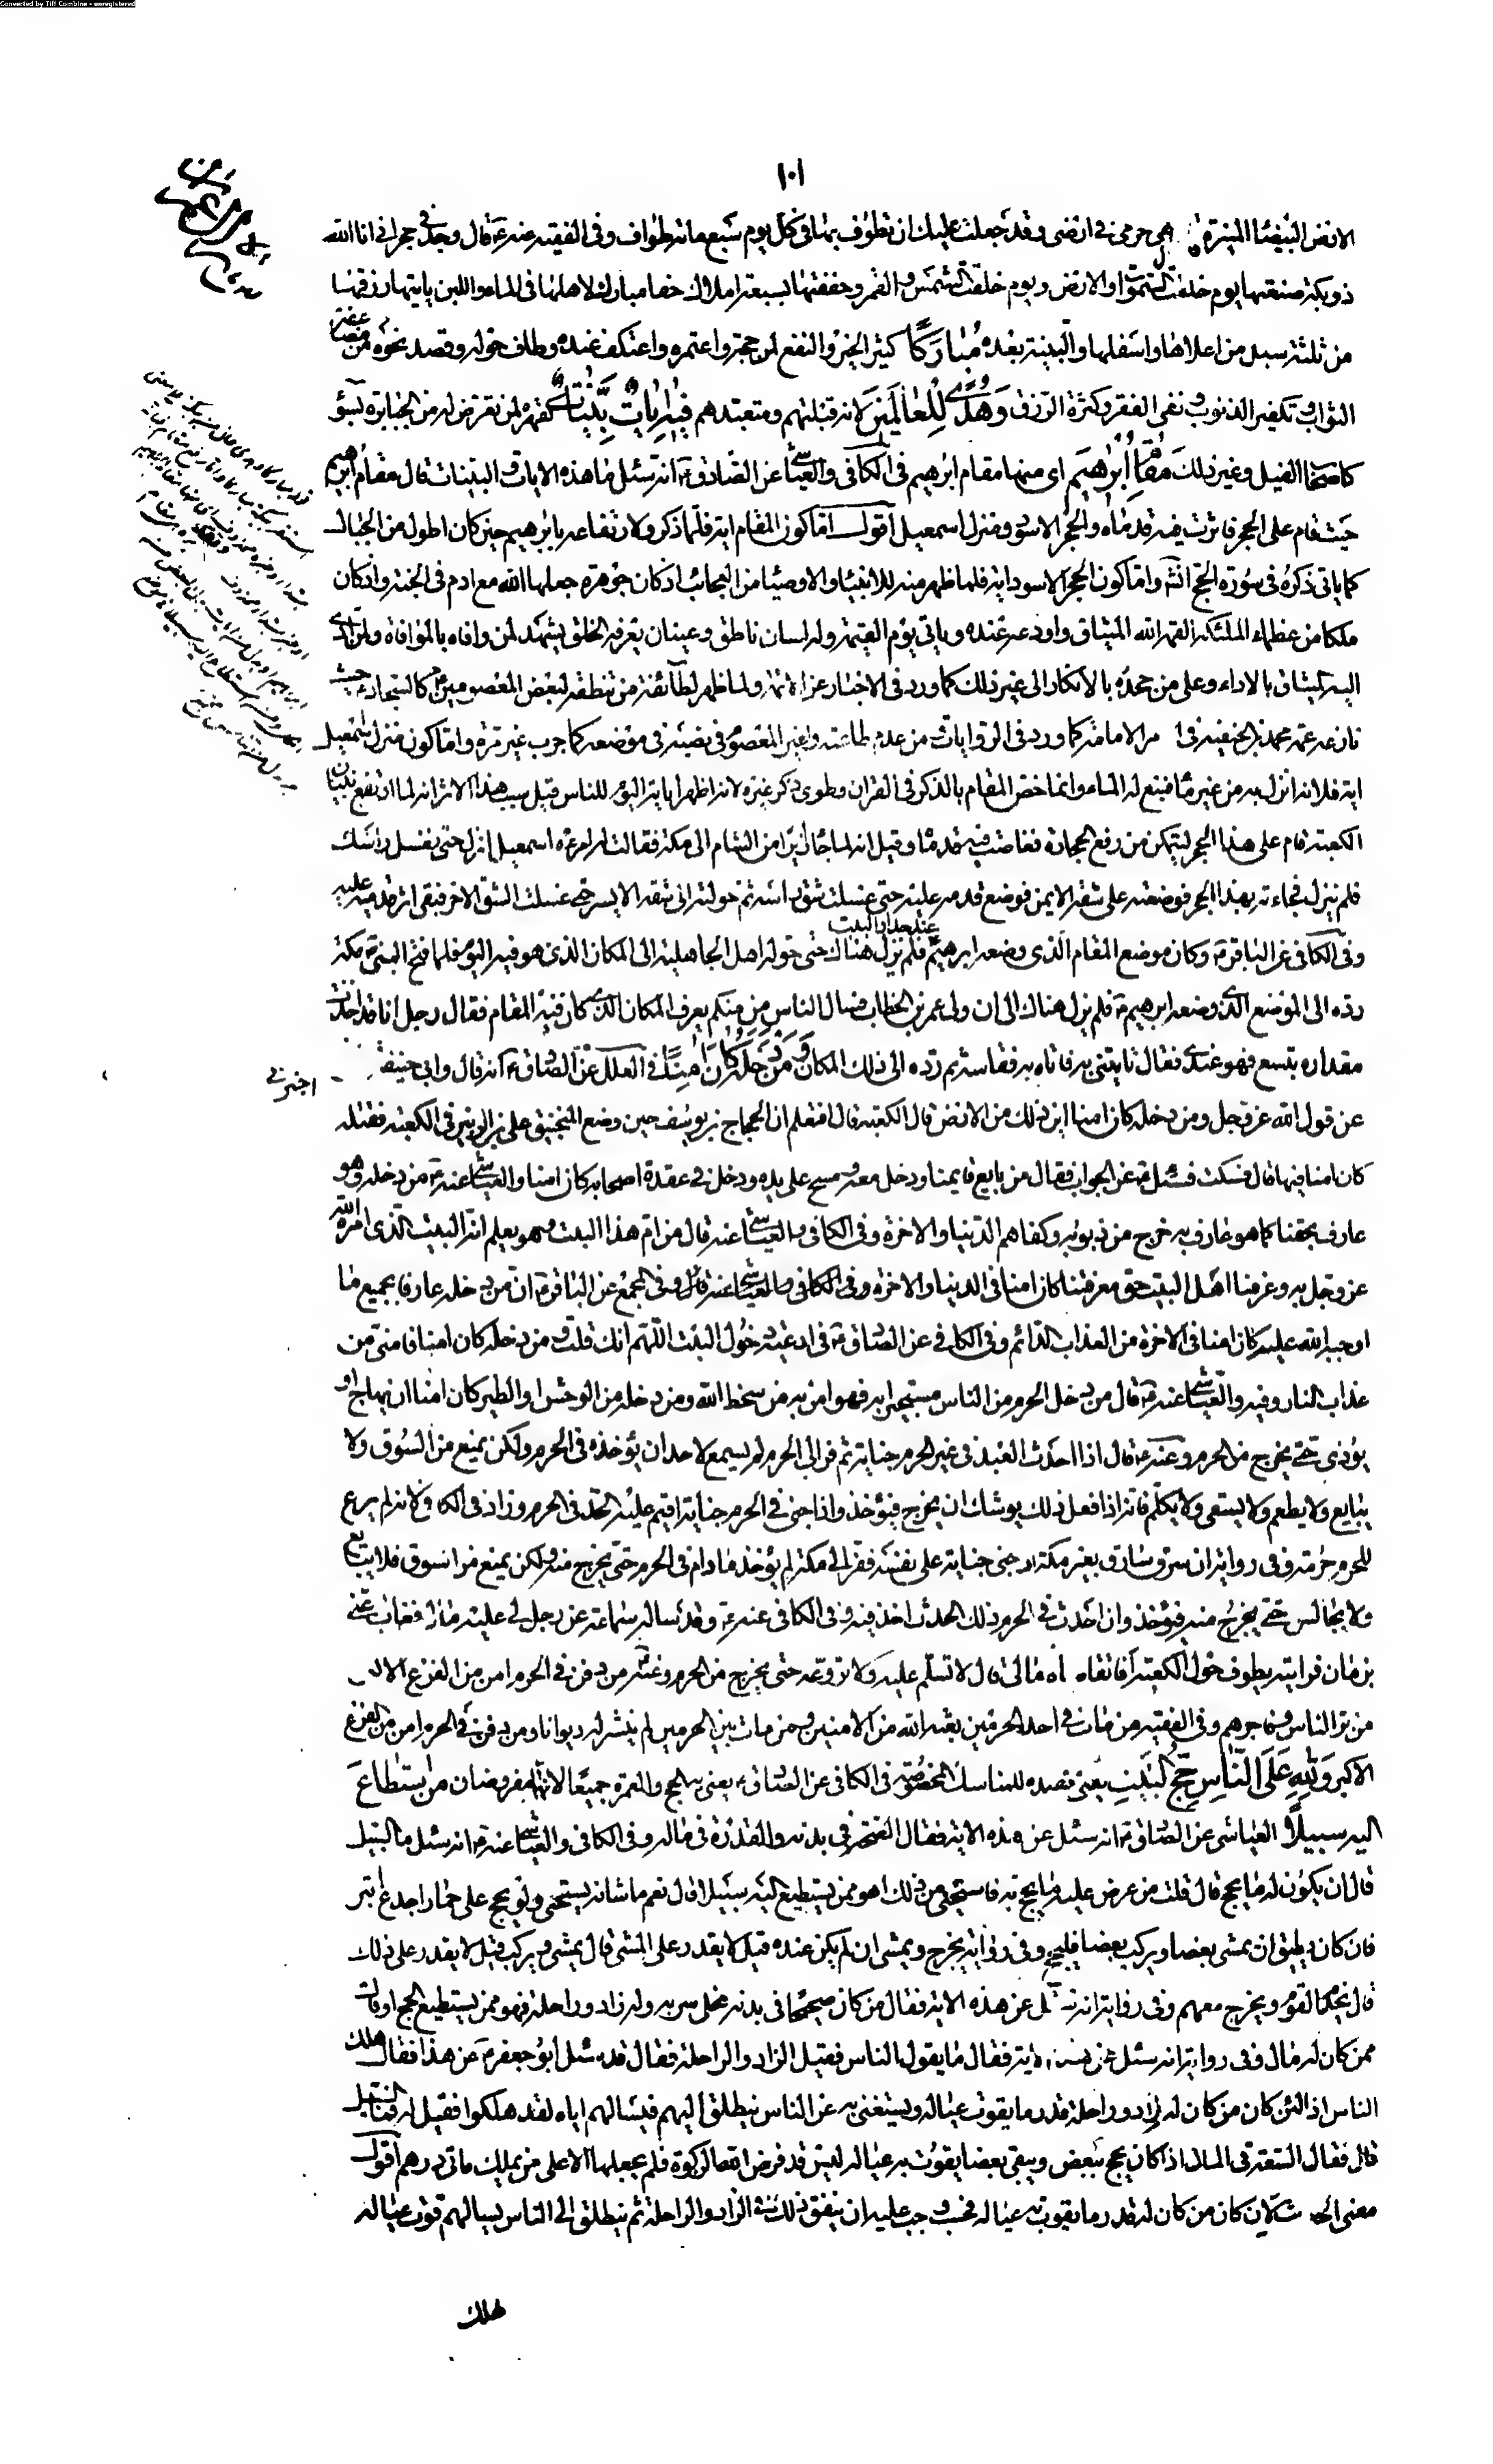 Converted by Tiff Combine - unregistered
١٠١
الارض البيضاء المنيرة هي حرمي في ارضي وقد جعلت عليك ان تطوف بها في كل يوم سبع مائة طواف وفي الفقيه عنه ع قال وجد في حجر اني انا الله
ذو بكة صنعتها يوم خلقت السموات والارض ويوم خلقت الشمس والقمر وحففتها بسبعة املاك حفا مبارك لاهلها في الماء واللبن ياتيها رزقها
من ثلثة سبل من اعلاها واسفلها والثنية بعده مُبارَكًا كثير الخير والنفع لمن حجه واعتمره واعتكف عنده وطاف حوله وقصد نحوه من مضاعفة
الثواب وتكفير الذنوب ونفي الفقر وكثرة الرزق وَهُدًى لِلْعالَمينَ لانه قبلتهم ومتعبدهم فيهِ اياتٌ بَيِّناتٌ كقهره لمن تعرض له من الجبابرة بسوء
كاصحاب الفيل وغير ذلك مَقامُ اِبْرهيمَ اي منها مقام ابرهيم في الكافي والعياشي عن الصادق ع انه سئل ما هذه الايات البينات قال مقام ابرهيم
حيث قام على الحجر فاثرت فيه قدماه والحجر الاسود ومنزل اسمعيل اقول اما كون المقام اية فلما ذكر ولارتفاعه بابرهيم حين كان اطول من الجبال
كما ياتي ذكره في سورة الحج انشاء واما كون الحجر الاسود اية فلما ظهر منه للانبياء والاوصياء من العجائب اذ كان جوهرة جعلها الله مع ادم في الجنة واذ كان
ملكا من عظماء الملئكة القمه الله الميثاق واودعه عنده وياتي يوم القيمة وله لسان ناطق وعينان يعرفه الخلق يشهد لمن وافاه بالموافاة ولمن ادى
اليه الميثاق بالاداء وعلى من جحده بالانكار الى غير ذلك كما ورد في الاخبار عن الائمة ولما ظهر لطائفة من تنطقه لبعض المعصومين ع كالسجاد ع حيث
نازعه عمه محمد بن الحنفية في امر الامامة كما ورد في الروايات ومن عدم طاعته لغير المعصوم في نصبه في موضعه كما جرب غير مرة واما كون منزل اسمعيل
اية فلانه انزل به من غير ماء فنبع له الماء وانما خص المقام بالذكر في القران وطوى ذكر غيره لانه اظهر اياته اليوم للناس قيل سبب هذا الاثر انه لما ارتفع بنيان
الكعبة قام على هذا الحجر ليتمكن من رفع الحجارة فغاصت فيه قدماه وقيل انه لما جاء زائرا من الشام الى مكة فقالت له امرءة اسمعيل انزل حتى نغسل راسك
فلم ينزل فجاءته بهذا الحجر فوضعته على شقه الايمن فوضع قدمه عليه حتى غسلت شق راسه ثم حولته الى شقه الايسر حتى غسلت الشق الاخر فبقي اثر قدميه عليه
وفي الكافي عن الباقر ع وكان موضع المقام الذي وضعه ابرهيم ع عند جدار البيت فلم يزل هناك حتى حوله اهل الجاهلية الى المكان الذي هو فيه اليوم فلما فتح النبي ص مكة
رده الى الموضع الذي وضعه ابرهيم ع فلم يزل هناك الى ان ولي عمر بن الخطاب فسال الناس من منكم يعرف المكان الذي كان فيه المقام فقال رجل انا قد اخذت
مقداره بتسع فهو عندي فقال تاتيني به فاتاه به فقاسه ثم رده الى ذلك المكان وَمَنْ دَخَلَهُ كانَ امِنًا في العلل عن الصادق ع انه قال لابي حنيفة اخبرني
عن قول الله عز وجل ومن دخله كان امنا اين ذلك من الارض قال الكعبة قال افتعلم ان الحجاج بن يوسف حين وضع المنجنيق على ابن الزبير في الكعبة فقتله
كان امنا فيها قال فسكت فسئل ع عن الجواب فقال من بايع قايمنا ودخل معه ومسح على يده ودخل في عقدة اصحابه كان امنا والعياشي عنه ع من دخله وهو
عارف بحقنا كما هو عارف به خرج من ذنوبه وكفاهم الدنيا والاخرة وفي الكافي والعياشي عنه قال من ام هذا البيت وهو يعلم انه البيت الذي امره الله
عز وجل به وعرفنا اهل البيت حق معرفتنا كان امنا في الدنيا والاخرة وفي الكافي والعياشي عنه قال وفي المجمع عن الباقر ع ان من دخله عارفا بجميع ما
اوجبه الله عليه كان امنا في الاخرة من العذاب الدائم وفي الكافي عن الصادق ع في ادعية دخول البيت اللهم انك قلت ومن دخله كان امنا فامني من
عذاب النار وفيه والعياشي عنه ع قال من دخل الحرم من الناس مستجيرا به فهو امن به من سخط الله ومن دخله من الوحش او الطير كان امنا ان يهاج او
يؤذى حتى يخرج من الحرم وعنه ع قال اذا احدث العبد في غير الحرم جناية ثم فر الى الحرم لم يسع لاحد ان ياخذه في الحرم ولكن يمنع من السوق ولا
يبايع ولا يطعم ولا يسقى ولا يكلم فانه اذا فعل ذلك يوشك ان يخرج فيؤخذ واذا جنى في الحرم جناية اقيم عليه الحد في الحرم وزاد في الكافي لانه لم يرع
للحرم حرمته وفي رواية ان سرق سارق بغير مكة او جنى جناية على نفسه ففر الى مكة لم يؤخذ ما دام في الحرم حتى يخرج منه ولكن يمنع من السوق فلا يبايع
ولا يجالس حتى يخرج منه فيؤخذ وان احدث في الحرم ذلك الحدث اخذ فيه وفي الكافي عنه ع وقد ساله سماعة عن رجل لي عليه مال فغاب عني
بزمان فرايته يطوف حول الكعبة افاتقاضاه مالي قال لا تسلم عليه ولا تروعه حتى يخرج من الحرم وعنه ع من دفن في الحرم امن من الفزع الاكبر
من بر الناس وفاجرهم وفي الفقيه من مات في احد الحرمين بعثه الله من الامنين ومن مات بين الحرمين لم ينشر له ديوان ومن دفن في الحرم امن من الفزع
الاكبر وَلِلّهِ عَلَى النّاسِ حِجُّ الْبَيْتِ يعني قصده للمناسك المخصوصة في الكافي عن الصادق ع يعني به الحج والعمرة جميعا لانهما مفروضان مَنِ اسْتَطاعَ
اليه سبيلًا العياشي عن الصادق ع انه سئل عن هذه الاية فقال الصحة في بدنه والقدرة في ماله وفي الكافي والعياشي عنه ع انه سئل ما السبيل
قال ان يكون له ما يحج به قال قلت من عرض عليه ما يحج به فاستحيى من ذلك اهو ممن يستطيع اليه سبيلا قال نعم ما شانه يستحيي ولو يحج على حمار اجدع ابتر
فان كان يطيق ان يمشي بعضا ويركب بعضا فليحج وفي رواية يخرج ويمشي ان لم يكن عنده قيل لا يقدر على المشي قال يمشي ويركب قيل لا يقدر على ذلك
قال يخدم القوم ويخرج معهم وفي رواية انه سئل عن هذه الاية فقال من كان صحيحا في بدنه مخلى سربه وله زاد وراحلة فهو ممن يستطيع الحج او قال
ممن كان له مال وفي رواية انه سئل عن هذه الاية فقال ما يقول الناس فقيل الزاد والراحلة فقال قد سئل ابو جعفر ع عن هذا فقال هلك
الناس اذا لئن كان من كان له زاد وراحلة قدر ما يقوت عياله ويستغني به عن الناس ينطلق اليهم فيسالهم اياه لقد هلكوا فقيل له فما السبيل
قال فقال السعة في المال اذا كان يحج ببعض ويبقي بعضا يقوت به عياله اليس قد فرض الله الزكوة فلم يجعلها الا على من يملك ماتي درهم اقول
معنى الحديث لان كان من كان له قدر ما يقوت به عياله فحسب وجب عليه ان ينفق ذلك في الزاد والراحلة ثم ينطلق الى الناس يسالهم قوت عياله
هلك